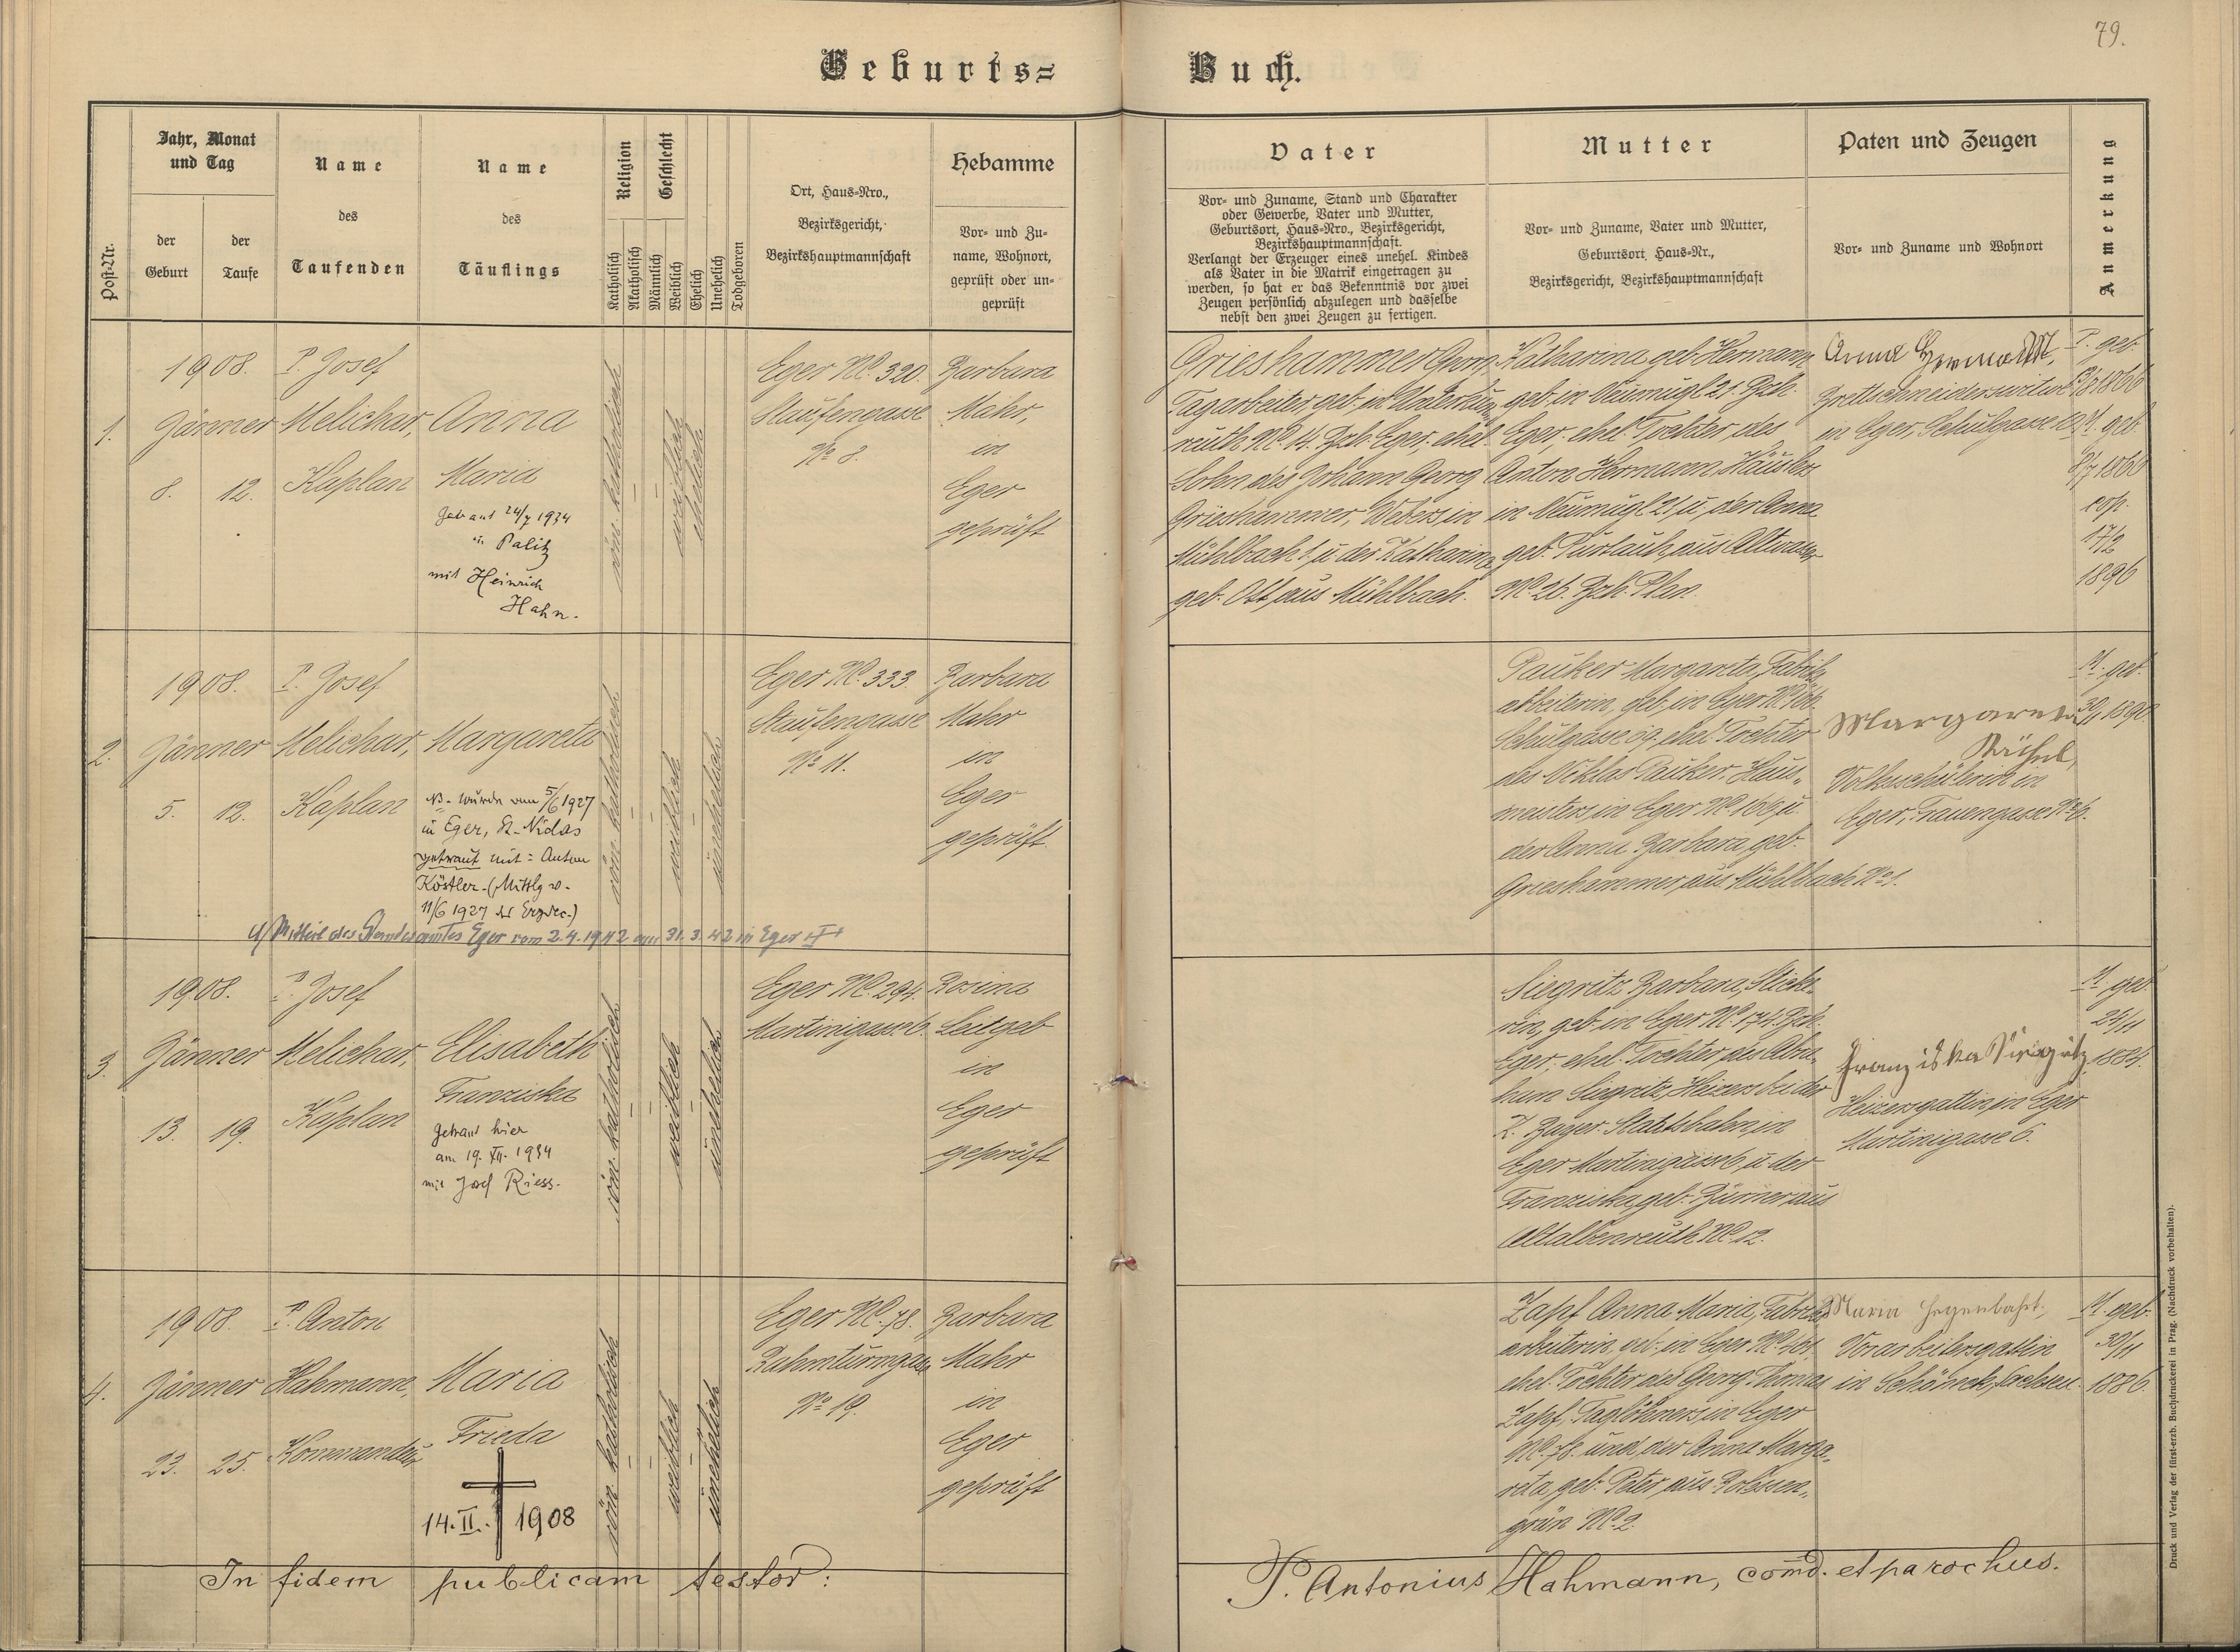 79.
Geburts=
Buch.
Post-Nr.
Jahr, Monat
und Tag
der
Geburt
der
Taufe
Name
des
Taufenden
Name
des
Täuflings
Religion
Katholisch
Akatholisch
Geschlecht
Männlich
Weiblich
Ehelich
Unehelich
Todgeboren
Ort, Haus=Nro.,
Bezirksgericht,
Bezirkshauptmannschaft
Hebamme
Vor= und Zu=
name, Wohnort,
geprüft oder un=
geprüft
Vater
Vor= und Zuname, Stand und Charakter
oder Gewerbe, Vater und Mutter,
Geburtsort, Haus=Nro., Bezirksgericht,
Bezirkshauptmannschaft.
Verlangt der Erzeuger eines unehel. Kindes
als Vater in die Matrik eingetragen zu
werden, so hat er das Bekenntnis vor zwei
Zeugen persönlich abzulegen und dasselbe
nebst den zwei Zeugen zu fertigen.
Mutter
Vor= und Zuname, Vater und Mutter,
Geburtsort, Haus=Nr.,
Bezirksgericht, Bezirkshauptmannschaft
Paten und Zeugen
Vor= und Zuname und Wohnort
Anmerkung
1.
1908.
Jänner
8. 12.
P. Josef
Melichar,
Kaplan
Anna
Maria
Getraut 24/7 1934
in Palitz
mit Heinrich
Hahn.
röm. katholisch
weiblich
ehelich
Eger Nc. 320.
Staufengasse
No 8.
Barbara
Mahr,
in
Eger
geprüft
Grieshammer Georg,
Tagarbeiter, geb. in Unterkun¬
reuth Nc. 14. Bzh. Eger, ehel.
Sohn des Johann Georg
Grieshammer, Webers in
Mühlbach 1 u. der Katharina
geb. Ott aus Mühlbach.
Katharina geb. Hermann
geb. in Neumugl 21. Bzh.
Eger, ehel. Tochter des
Anton Hermann, Häuslers
in Neumugl 21 u. der Anna
geb. Purlauch aus Altwasser
Nc. 26. Bzh. Plan.
Anna
Brettschneiderswitwe
in Eger, Schulgasse
V. geb.
M. geb.
cop.
17/2
1896
2.
1908.
Jänner
5. 12.
P. Josef
Melichar,
Kaplan
Margareta
NB. wurde am 5/6 1927
in Eger, St. Niclas
getraut mit: Anton
Köstler. (Mittlg v.
11/6 1927 d. Erzdec.)
röm. katholisch
weiblich
unehelich
Eger Nc. 333.
Staufengasse
No 11.
Barbara
Mahr
in
Eger
geprüft.
Pauker Margareta, Fabriks¬
arbeiterin, geb. in Eger Nc. 166.
Schulgasse 9. ehel. Tochter
des Niklas Pauker, Haus¬
meisters in Eger Nc. 166 u.
der Anna Barbara, geb.
Grieshammer aus Mühlbach No 1.
Margareta
Volksschülerin in
Eger, Frauengasse No 6.
M. geb.
30/11 1890.
lt/Mitteil des Standesamtes Eger vom 2.4.1942 am 31.3.42 in Eger †
3.
1908.
Jänner
13. 19.
P. Josef
Melichar,
Kaplan
Elisabeth
Franziska
Getraut hier
am 19. VII. 1934
mit Josef Riess.
röm. katholisch
weiblich
unehelich
Eger Nc. 294.
Martinigasse 6.
Rosina
Leitgeb
in
Eger
geprüft
Siegritz Barbara, Sticke¬
rin, geb. in Eger Nc. 174. Bzh.
Eger, ehel. Tochter des Abra¬
ham Siegritz, Heizers bei der
K. Bayer. Staatsbahn, in
Eger Martinigasse 6, u. der
Franziska, geb. Zürner aus
Altalbenreuth Nc. 12.
Franziska Siegritz
Heizersgattin, in Eger
Martinigasse 6.
M. geb.
24/11
1884.
4.
1908
Jänner
23. 25.
P. Anton
Hahmann,
Kommandeur
Maria
Frieda
14. II. 1908
röm. katholisch
weiblich
unehelich
Eger Nc. 78.
Rahmturmgasse
No 19.
Barbara
Mahr
in
Eger
geprüft
Zapf Anna Maria, Fabriks¬
arbeiterin, geb. in Eger Nc. 401.
ehel. Tochter des Georg Thomas
Zapf, Taglöhners in Eger
Nc. 78. und der Anna Marga¬
reta, geb. Peter, aus Rohessen¬
grün Nc. 2.
Maria Hegenbahrt,
Vorarbeitersgattin
in Schöneck, Sachsen.
M. geb.
30/11
1886.
In fidem publicam testor:
P. Antonius Hahmann, comd. et parochus.
Druck und Verlag der fürst-erzb. Buchdruckerei in Prag. (Nachdruck vorbehalten).